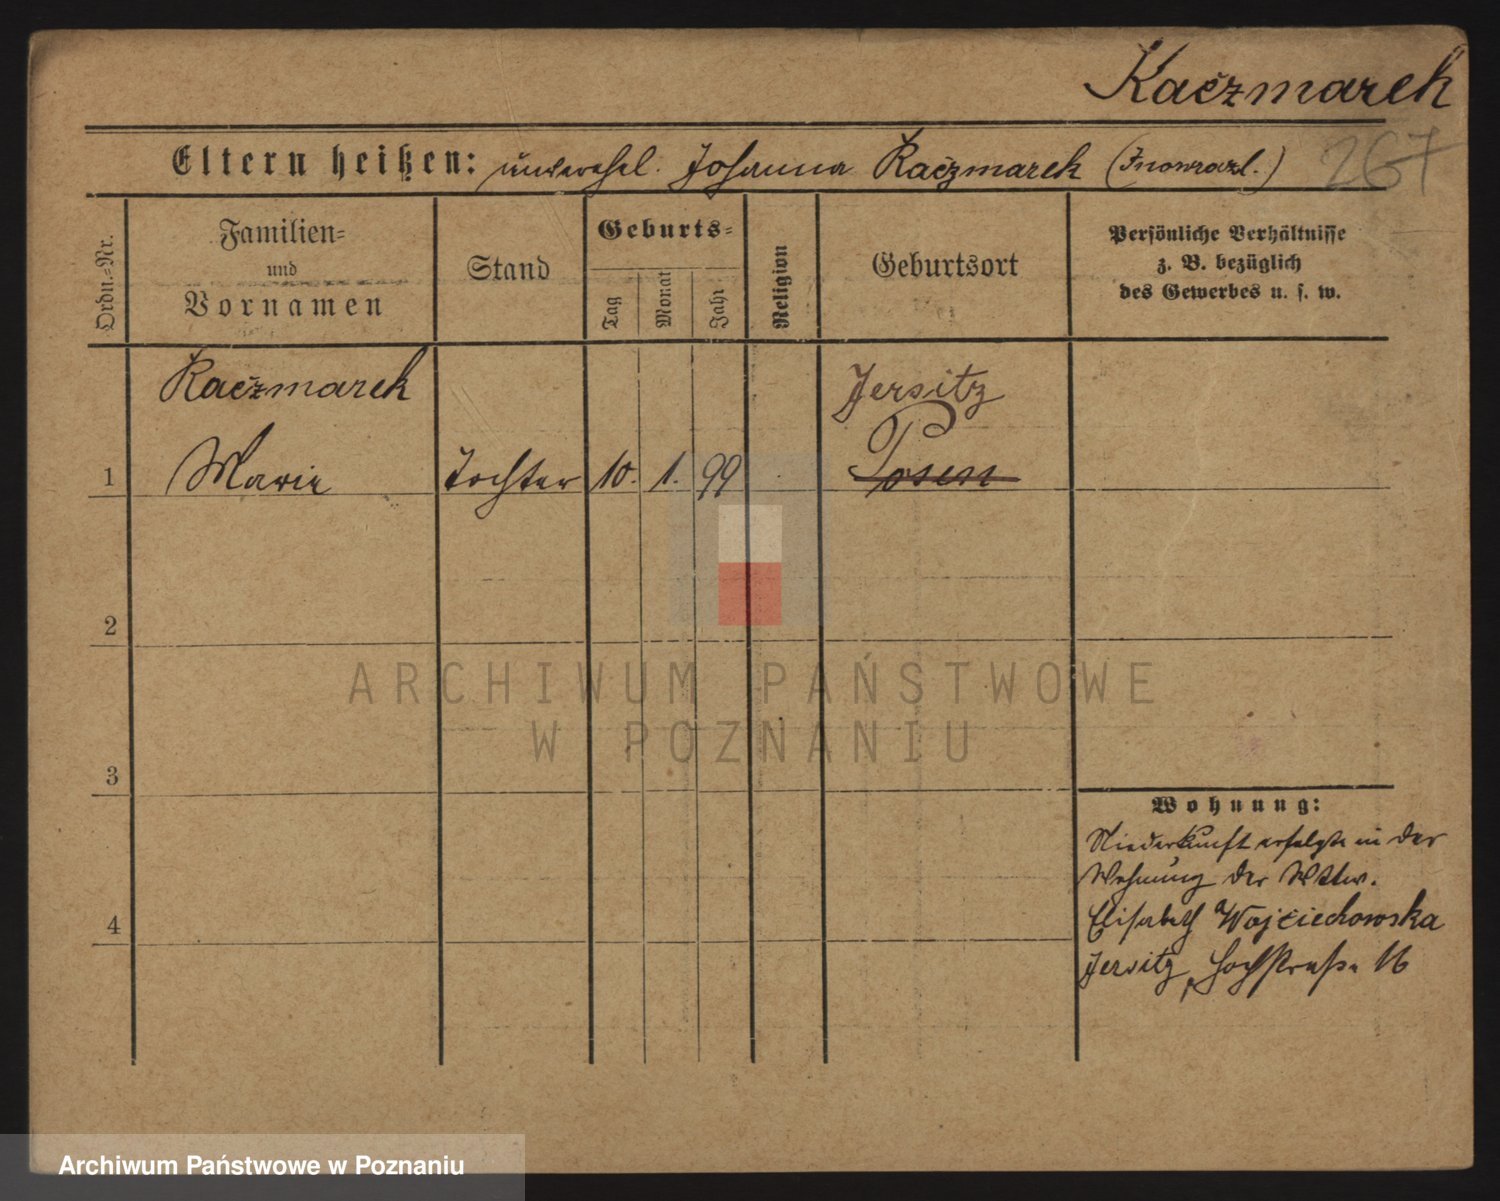 Kaczmarek
Eltern heißen: unverehel. Johanna Kaczmarek (Inowrazl.)
267
Ordn.-Nr.
Familien-
und
Vornamen
Stand
Geburts-
Tag
Monat
Jahr
Religion
Geburtsort
Persönliche Verhältnisse
z. B. bezüglich
des Gewerbes u. s. w.
Kaczmarek
Jersitz
1 Marie Tochter 10. 1. 99 Posen
2
3
4
Wohnung:
Niederkunft erfolgte in der
Wohnung der Wttw.
Elisabeth Wojciechowska
Jersitz, Hochstraße 16
ARCHIWUM PAŃSTWOWE
W POZNANIU
Archiwum Państwowe w Poznaniu